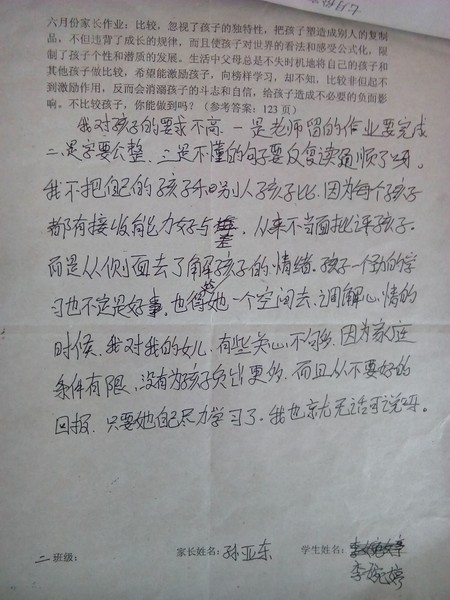 六月份家长作业：比较，忽视了孩子的独特性，把孩子塑造成别人的复制
品，不但违背了成长的规律，而且使孩子对世界的看法和感受公式化，限
制了孩子个性和潜质的发展。生活中父母总是不失时机地将自己的孩子和
其他孩子做比较，希望能激励孩子，向榜样学习，却不知，比较非但起不
到激励作用，反而会消溺孩子的斗志和自信，给孩子造成不必要的负面影
响。不比较孩子，你能做到吗？（参考答案：123 页）
我对孩子的要求不高，一是老师留的作业要完成
二是字要公整，三是不懂的句子要反复读通顺了吗。
我不把自己的孩子和别人孩子比，因为每个孩子
都有接收能力好与差，从来不当面批评孩子。
而是从侧面去了解孩子的情绪。孩子一个劲的学
习也不定是好事，也得给她一个空间去调解心情的
时候，我对我的女儿，有些关心不够，因为家庭
条件有限，没有为孩子负出更多，而且从不要好的
回报，只要她自己尽力学习了，我也就无话可说吗。
二班级： 家长姓名：孙亚东 学生姓名：
李婉婷